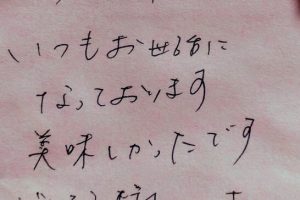 いつもお世話に
なっております
美味しかったです